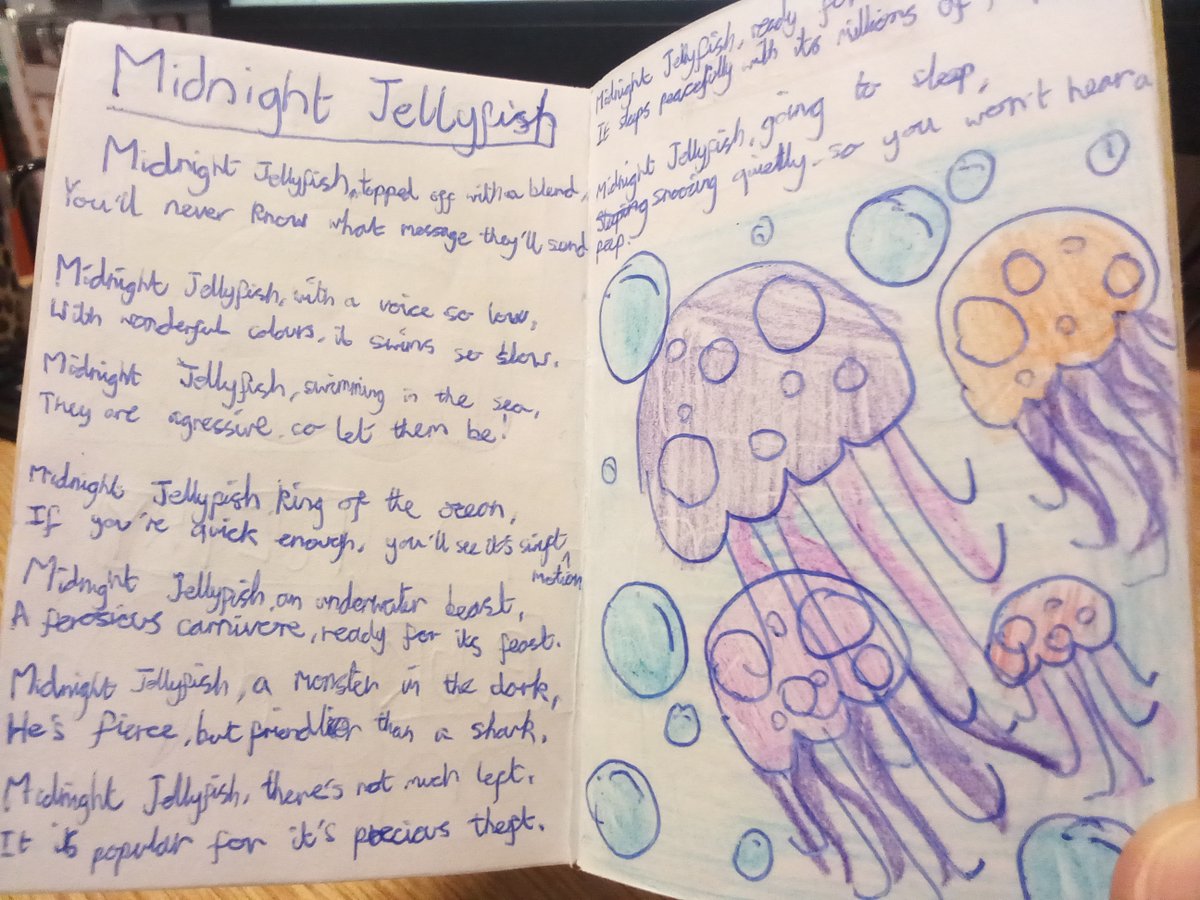 Midnight Jellyfish
Midnight Jellyfish, topped off with a blend,
You'll never know what message they'll send
Midnight Jellyfish, with a voice so low,
With wonderful colours, it swims so slow.
Midnight Jellyfish, swimming in the sea,
They are agressive so let them be!
Midnight Jellyfish King of the ocean,
If you're quick enough, you'll see it's swift
motion
Midnight Jellyfish, an underwater beast,
A ferosious carnivere, ready for its feast.
Midnight Jellyfish, a monster in the dark,
He's fierce, but friendlier than a shark.
Midnight Jellyfish, there's not much left.
It is popular for it's precious theft.
Midnight Jellyfish, ready for
It sleps peacefully with its millions of
Midnight Jellyfish, going to sleep,
snoozing quietly so you won't hear a
peep.